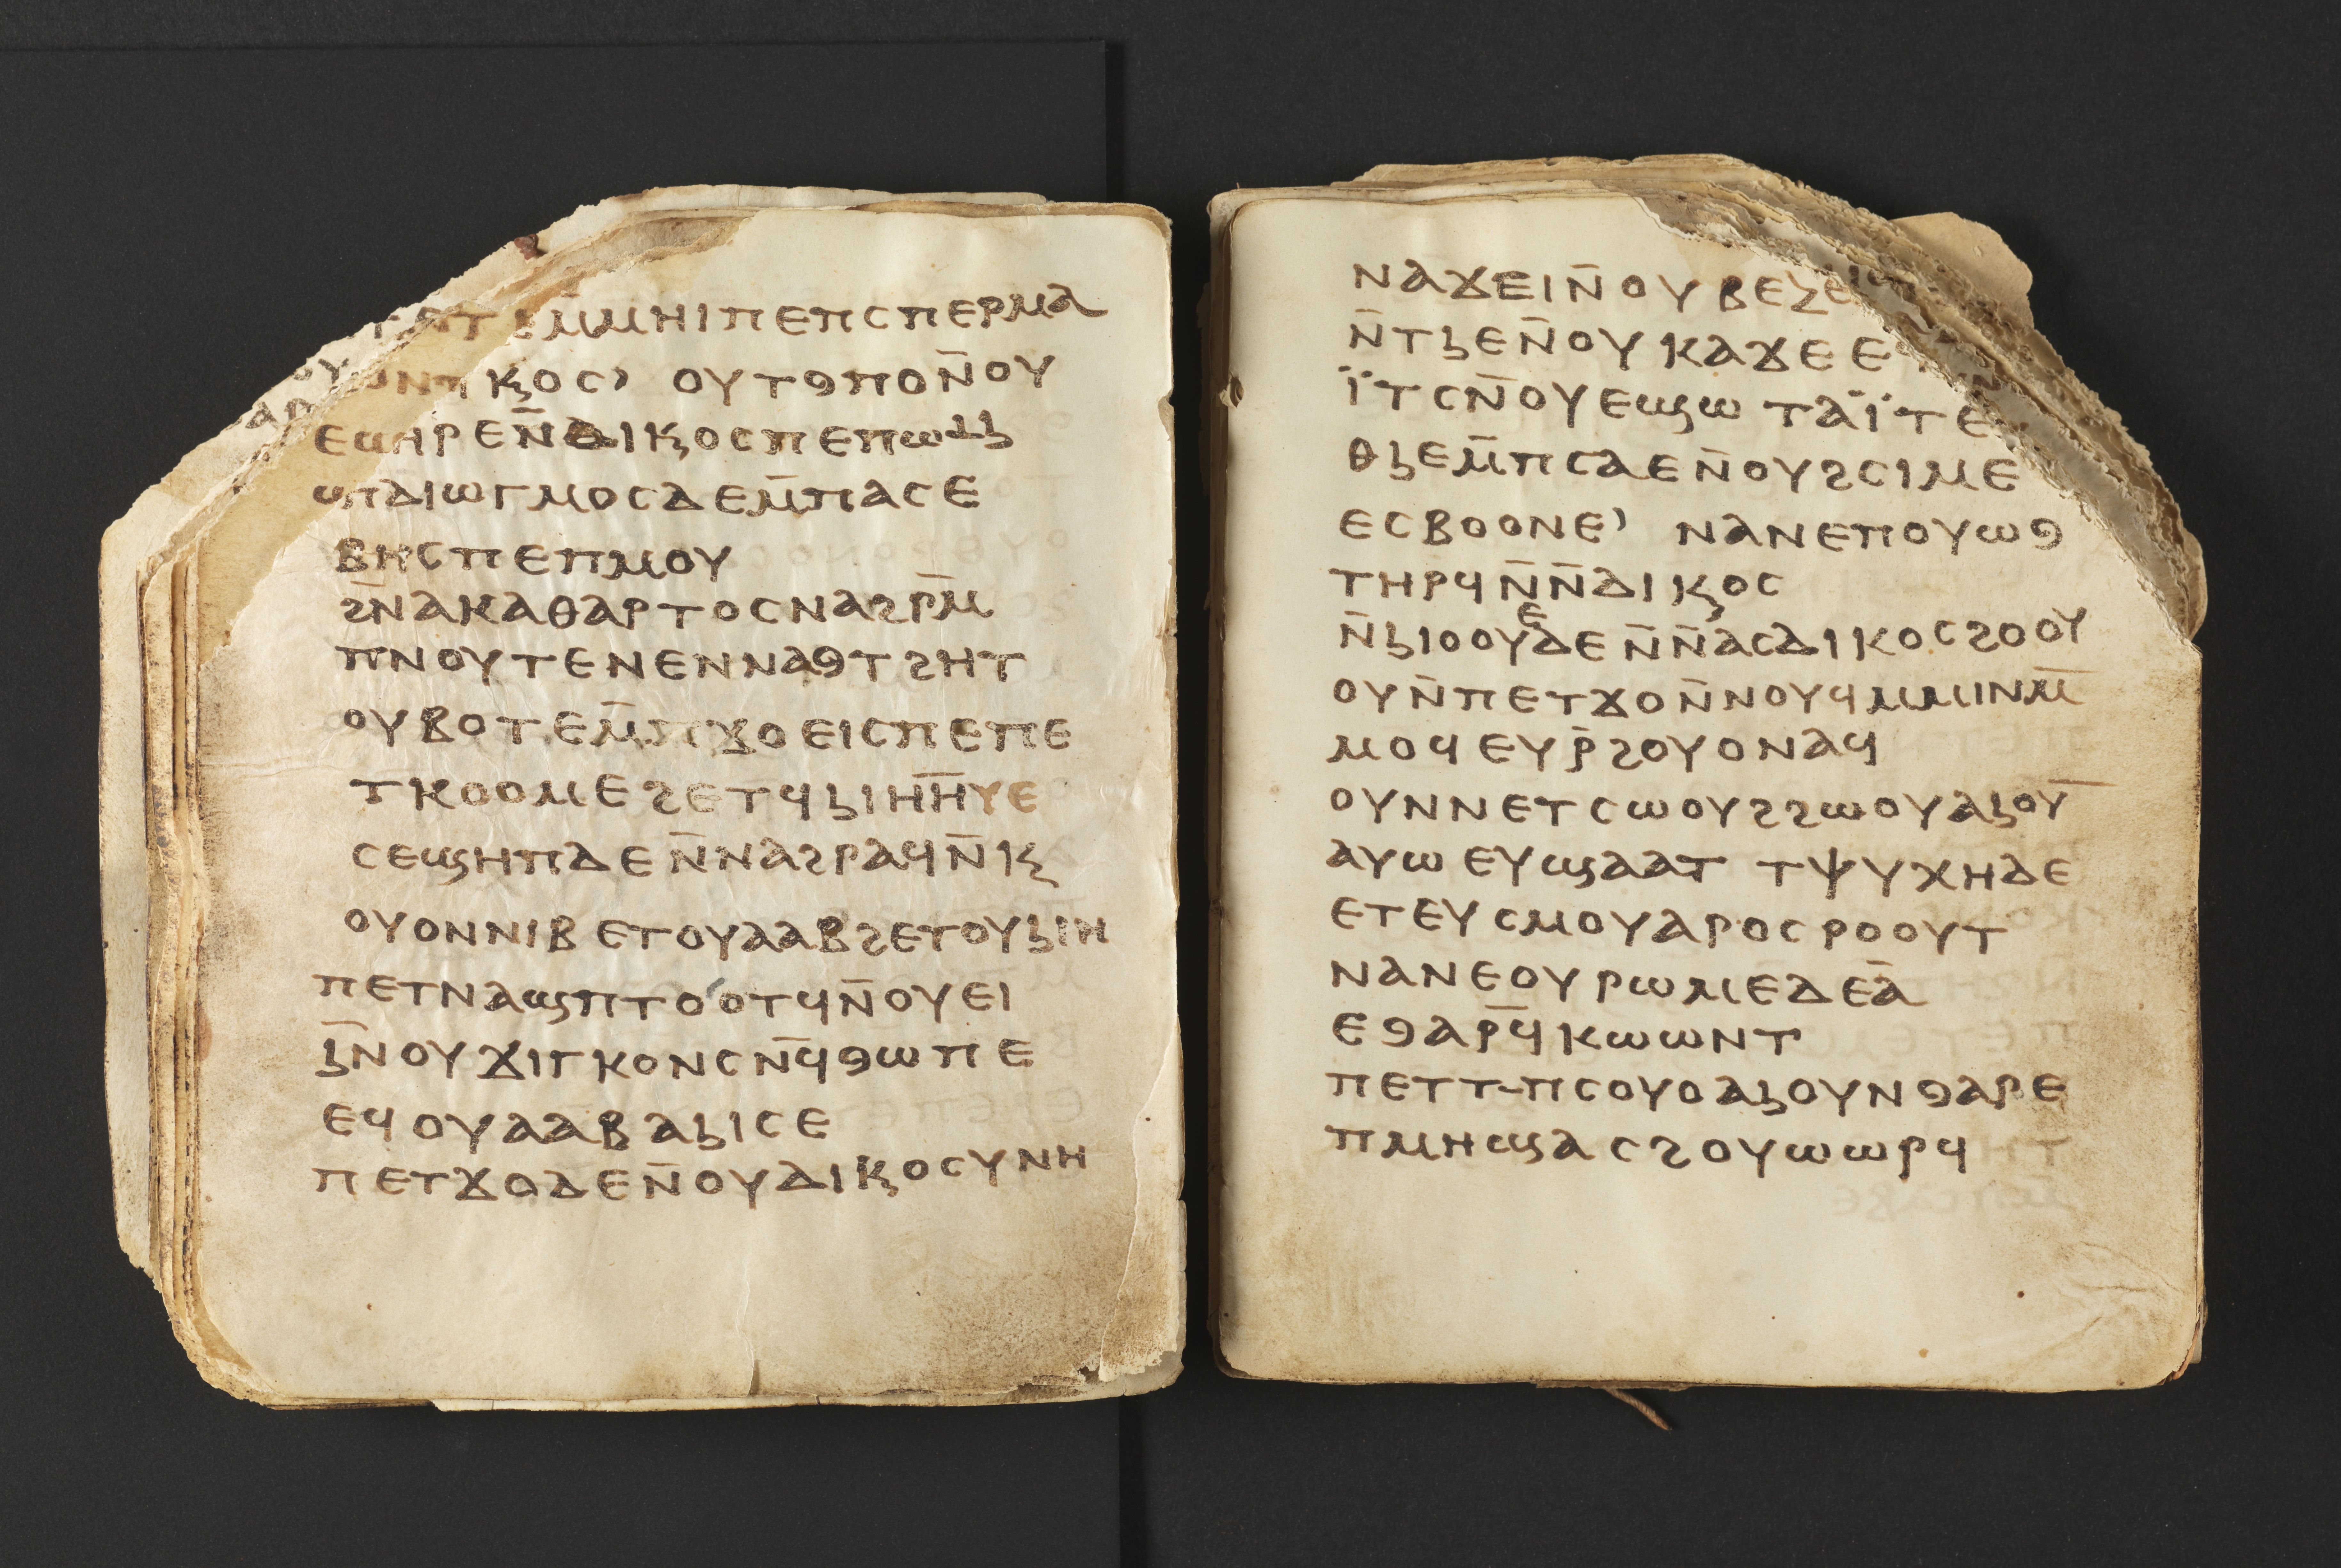 ⲙ̄ⲙⲏⲓⲡⲉⲡⲥⲡⲉⲣⲙⲁ
ϗⲟⲥ⳿ ⲟⲩⲧϣⲡⲟⲛ̄ⲟⲩ
ⲉϣⲏⲣⲉⲛ̄ⲇⲓϗⲟⲥⲡⲉⲡⲱⲻⳉ
ϣⲡⲇⲓⲱⲅⲙⲟⲥⲇⲉⲙ̄ⲡⲁⲥⲉ
ⲃⲏⲥⲡⲉⲡⲙⲟⲩ
ϩⲛ̄ⲁⲕⲁⲑⲁⲣⲧⲟⲥⲛⲁϩⲣⲙ̄
ⲡⲛⲟⲩⲧⲉⲛⲉⲛⲛⲁϣⲧϩⲏⲧ
ⲟⲩⲃⲟⲧⲉⲙ̄ⲡϫⲟⲉⲓⲥⲡⲉⲡⲉ
ⲧⲕⲟⲟⲙⲉϩⲉⲧϥⳉⲓⲏⲏ̄ⲩⲉ
ⲥⲉϣⲏⲡⲇⲉⲛ̄ⲛⲁϩⲣⲁϥⲛ̄ⲓϗ
ⲟⲩⲟⲛⲛⲓⲃⲉⲧⲟⲩⲁⲁⲃϩⲉⲧⲟⲩⳉⲓⲏ
ⲡⲉⲧⲛⲁϣⲡⲧⲟ⳿ⲟⲧϥⲛ̄ⲟⲩⲉⲓ
ⳉⲛ̄ⲟⲩϫⲓⲅⲕⲟⲛⲥⲛ̄ϥϣⲱⲡⲉ
ⲉϥⲟⲩⲁⲁⲃⲁⳉⲓⲥⲉ
ⲡⲉⲧϫⲟⲇⲉⲛ̄ⲟⲩⲇⲓϗⲟⲥⲩⲛⲏ
ⲛⲁϫⲉⲓⲛ̄ⲟⲩⲃⲉⲕⲉ
ⲛ̄ⲧⳉⲉⲛ̄ⲟⲩⲕⲁϫⲉⲉ
ⲓ̈ⲧⲥⲛ̄ⲟⲩⲉϣⲱ ⲧⲁⲓ̈ⲧⲉ
ⲑⳉⲉⲙ̄ⲡⲥⲁⲉⲛ̄ⲟⲩϩⲥⲓⲙⲉ
ⲉⲥⲃⲟⲟⲛⲉ⳿ ⲛⲁⲛⲉⲡⲟⲩⲱϣ
ⲧⲏⲣϥⲛ̄ⲛ̄ⲇⲓϗⲟⲥ
ⲛ̄ⳉⲓⲟⲟⲩⲉⲇⲉⲛ̄ⲛ̄ⲁⲥⲇⲓⲕⲟⲥϩⲟⲟⲩ
ⲟⲩⲛ̄ⲡⲉⲧϫⲟⲛ̄ⲛⲟⲩϥⲙⲙⲓⲛⲙ̄
ⲙⲟϥⲉⲩⲣ̄ϩⲟⲩⲟⲛⲁϥ
ⲟⲩⲛⲛⲉⲧⲥⲱⲟⲩϩϩⲱⲟⲩⲁⳉⲟⲩ̄
ⲁⲩⲱⲉⲩϣⲁⲁⲧ ⲧⲯⲩⲭⲏⲇⲉ
ⲉⲧⲉⲩⲥⲙⲟⲩⲁⲣⲟⲥⲣⲟⲟⲩⲧ
ⲛⲁⲛⲉⲟⲩⲣⲱⲙⲉⲇⲉⲁ̄
ⲉϣⲁⲣϥ̄ⲕⲱⲱⲛⲧ
ⲡⲉⲧⲧ-ⲡⲥⲟⲩⲟⲁⳉⲟⲩⲛϣⲁⲣⲉ
ⲡⲙⲏϣⲁⲥϩⲟⲩⲱⲱⲣϥ